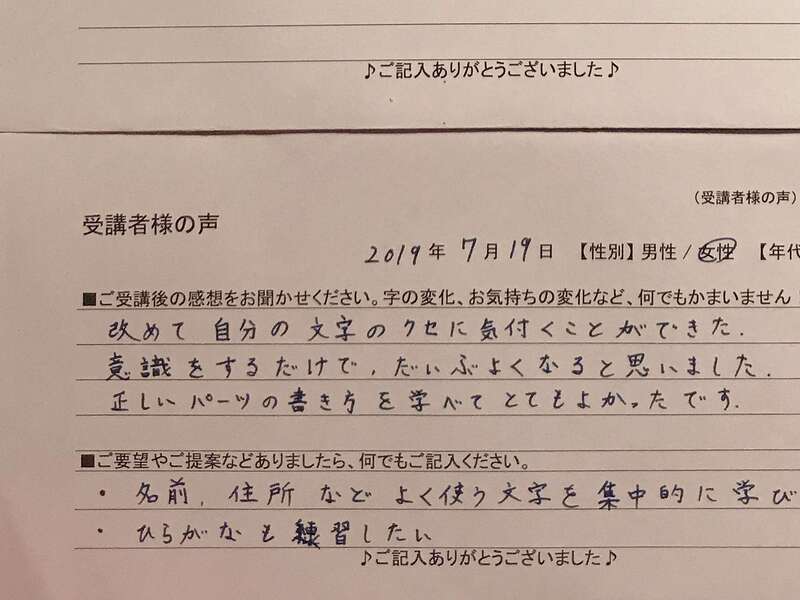 ♪ご記入ありがとうございました♪
（受講者様の声）
受講者様の声
2019年 7月19日 【性別】男性 / 女性 【年代
■ご受講後の感想をお聞かせください。字の変化、お気持ちの変化など、何でもかまいません！
改めて自分の文字のクセに気付くことができた.
意識をするだけで,だいぶよくなると思いました.
正しいパーツの書き方を学べてとてもよかったです.
■ご要望やご提案などありましたら、何でもご記入ください。
・名前,住所などよく使う文字を集中的に学び
・ひらがなも練習したい
♪ご記入ありがとうございました♪